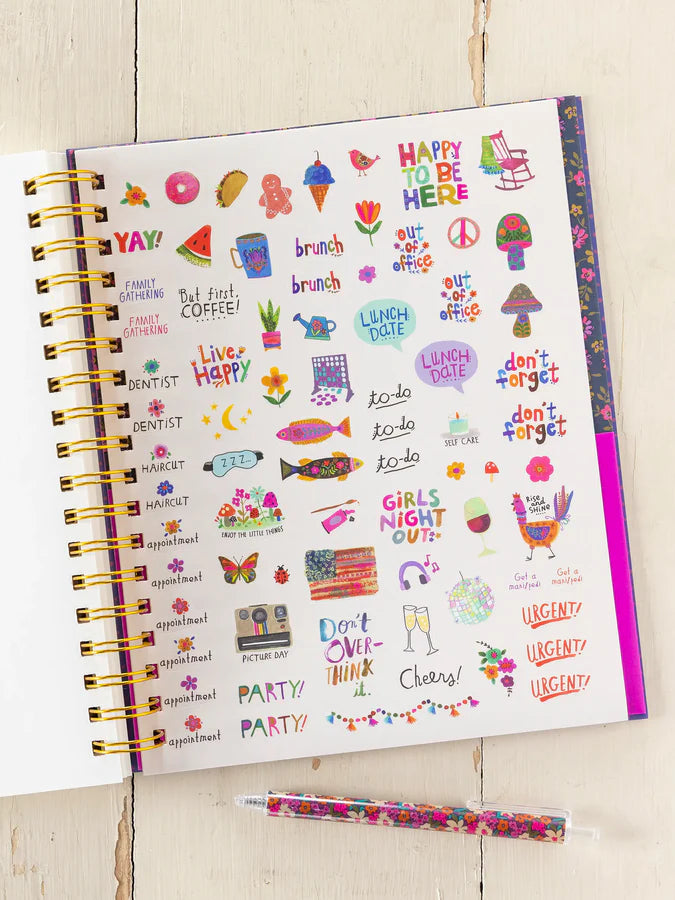 HAPPY
TO BE
HERE
YAY!
brunch
out
of
office
FAMILY
GATHERING
But first,
COFFEE!
brunch
out
of
office
FAMILY
GATHERING
LUNCH
DATE
Live
Happy
LUNCH
DATE
don't
forget
DENTIST
to-do
DENTIST
to-do
SELF CARE
don't
forget
HAIRCUT
ZZZ...
to-do
HAIRCUT
ENJOY THE LITTLE THINGS
GIRLS
NIGHT
OUT!
RISE
AND
SHINE
appointment
appointment
Get a
mani/pedi
Get a
mani/pedi
appointment
PICTURE DAY
Don't
OVER-
THINK
it.
URGENT!
appointment
Cheers!
URGENT!
appointment
PARTY!
URGENT!
appointment
PARTY!